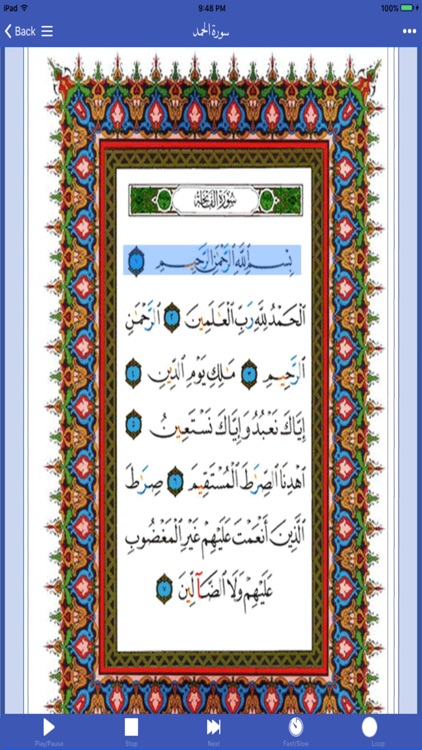 iPad 9:48 PM 100%
Back سورة الحمد
سُورَةُ الفَاتِحَةِ
بِسْمِ ٱللَّهِ ٱلرَّحْمَٰنِ ٱلرَّحِيمِ ١
ٱلْحَمْدُ لِلَّهِ رَبِّ ٱلْعَٰلَمِينَ ٢ ٱلرَّحْمَٰنِ
ٱلرَّحِيمِ ٣ مَٰلِكِ يَوْمِ ٱلدِّينِ ٤
إِيَّاكَ نَعْبُدُ وَإِيَّاكَ نَسْتَعِينُ ٥
ٱهْدِنَا ٱلصِّرَٰطَ ٱلْمُسْتَقِيمَ ٦ صِرَٰطَ
ٱلَّذِينَ أَنْعَمْتَ عَلَيْهِمْ غَيْرِ ٱلْمَغْضُوبِ
عَلَيْهِمْ وَلَا ٱلضَّآلِّينَ ٧
Play/Pause Stop Next Fast/Slow Loop